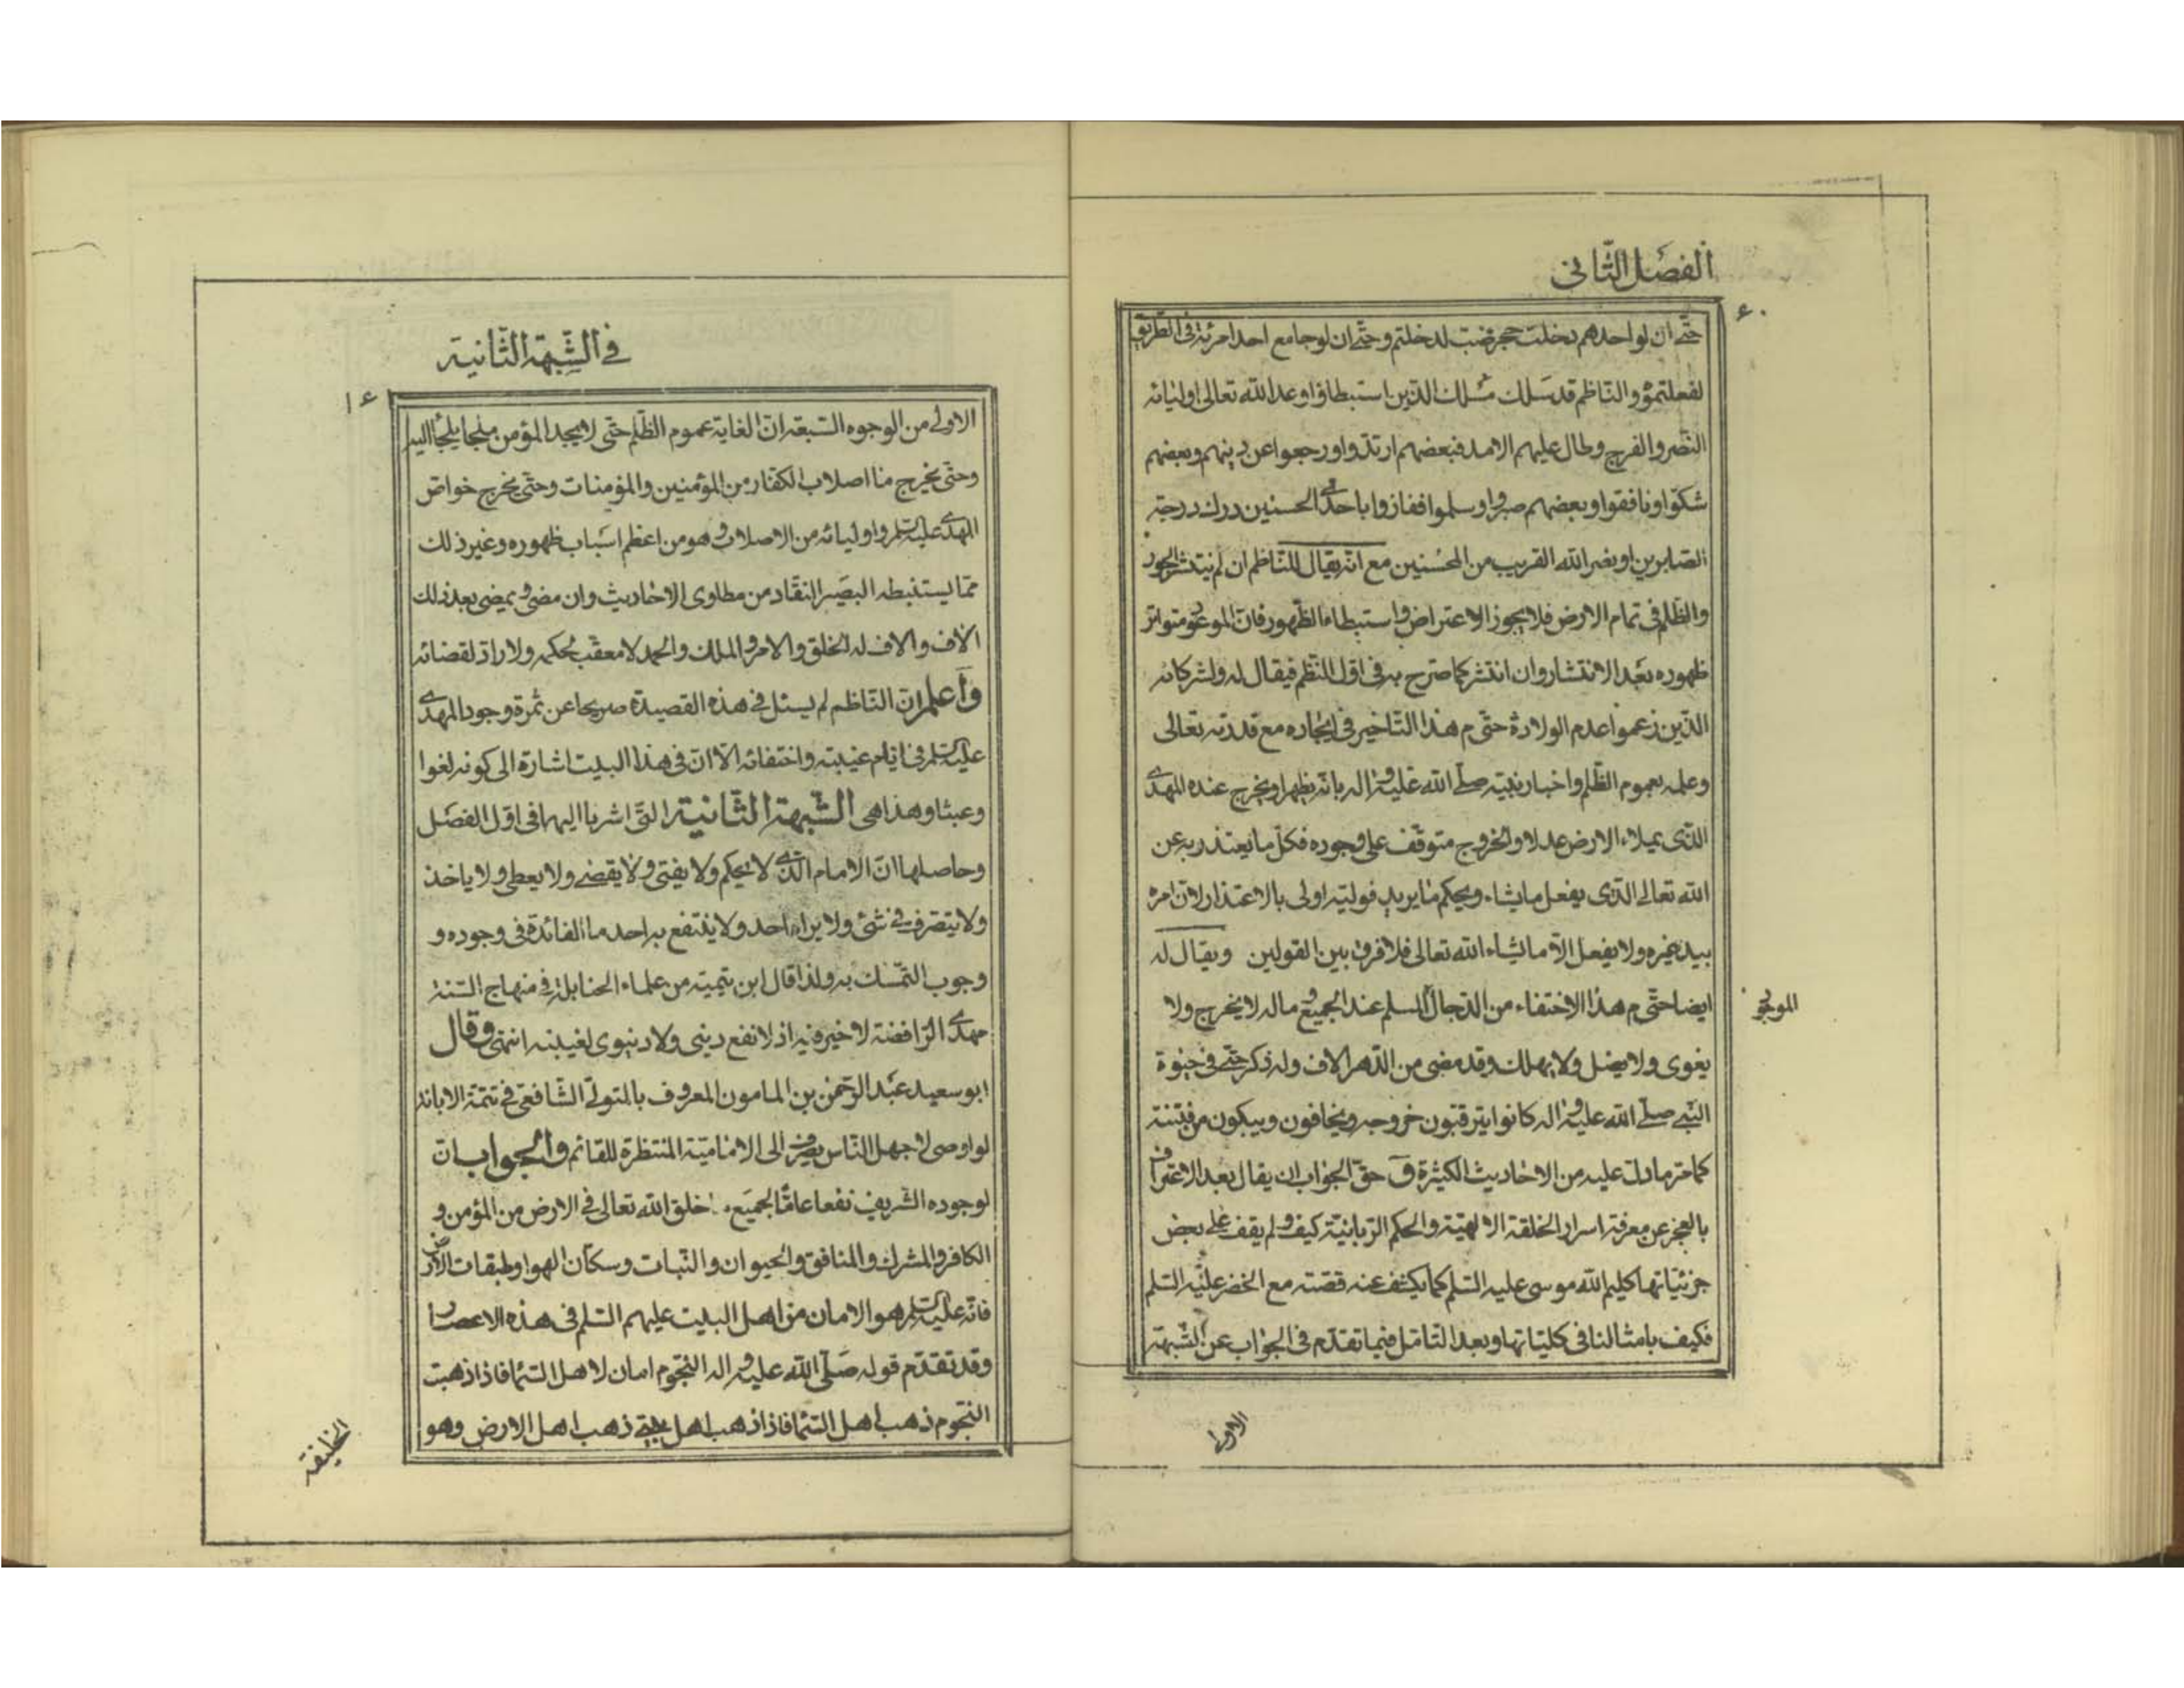 الفصل الثاني
۶۰
حتى ان لو احدهم دخلت حجر ضب لدخلتم وحتى ان لو جامع احد امرئته في الطريق
لفعلتموه والناظم قد سلك مسلك الذين استبطاؤا وعد الله تعالى اوليائه
النصر والفرج وطال عليهم الامد فبعضهم ارتدوا ورجعوا عن دينهم وبعضهم
شكوا ونافقوا وبعضهم صبروا وسلموا ففازوا باحدى الحسنيين درك درجة
الصابرين او نصر الله القريب من المحسنين مع انه يقال للناظم ان لم ينتشر الجور
والظلم في تمام الارض فلا يجوز الاعتراض واستبطاء الظهور فان الموعود متواتر
ظهوره بعد الانتشار وان انتشر كما صرح به في اول النظم فيقال له ولشركائه
الذين زعموا عدم الولادة حتى م هذا التاخير في ايجاده مع قدرته تعالى
وعلمه بعموم الظلم واخبار نبيه صلى الله عليه واله بانه يظهر او يخرج عنده المهدي
الذي يملاء الارض عدلا والخروج متوقف على وجوده فكل ما يعتذر به عن
الله تعالى الذي يفعل ما يشاء ويحكم ما يريد فوليه اولى بالاعتذار لان امره
بيد غيره ولا يفعل الا ما يشاء الله تعالى فلا فرق بين القولين ويقال له
ايضا حتى م هذا الاختفاء من الدجال المسلم عند الجميع ماله لا يخرج ولا
الموجود
يغوى ولا يضل ولا يهلك وقد مضى من الدهر الاف وله ذكر حتى في حيوة
النبي صلى الله عليه واله كانوا يترقبون خروجه ويخافون ويبكون من فتنته
كما مر ما دل عليه من الاحاديث الكثيرة وحق الجواب ان يقال بعد الاعتراف
بالعجز عن معرفة اسرار الخلقة الالهية والحكم الربانية كيف ولم يقف على بعض
جزئياتها كليم الله موسى عليه السلم كما يكشف عنه قصته مع الخضر عليه السلم
فكيف بامثالنا في كلياتها وبعد التامل فيما تقدم في الجواب عن الشبهة
الاولى
في الشبهة الثانية
۶۱
الاولى من الوجوه السبعة ان الغاية عموم الظلم حتى لا يجد المؤمن ملجا يلجأ اليه
وحتى يخرج ما اصلاب الكفار من المؤمنين والمؤمنات وحتى يخرج خواص
المهدي عليه السلم واوليائه من الاصلاب وهو من اعظم اسباب ظهوره وغير ذلك
مما يستنبطه البصير النقاد من مطاوى الاحاديث وان مضى ويمضي بعد ذلك
الاف والاف له الخلق والامر والملك والحمد لا معقب لحكمه ولا راد لقضائه
واعلم ان الناظم لم يسئل في هذه القصيدة صريحا عن ثمرة وجود المهدي
عليه السلم في ايام غيبته واختفائه الا ان في هذا البيت اشارة الى كونه لغوا
وعبثا وهذا هي الشبهة الثانية التي اشرنا اليها في اول الفصل
وحاصلها ان الامام الذي لا يحكم ولا يفتى ولا يقضي ولا يعطى ولا ياخذ
ولا يتصرف في شئ ولا يراه احد ولا ينتفع به احد ما الفائدة في وجوده و
وجوب التمسك به ولذا قال ابن تيمية من علماء الحنابلة في منهاج السنة
مهدي الرافضة لا خير فيه اذ لا نفع ديني ولا دنيوى لغيبته انتهى وقال
ابو سعيد عبد الرحمن بن المامون المعروف بالمتولى الشافعي في تتمة الابانة
لو اوصى لاجهل الناس يصرف الى الامامية المنتظرة للقائم والجواب ان
لوجوده الشريف نفعا عاما لجميع خلق الله تعالى في الارض من المؤمن و
الكافر والمشرك والمنافق والحيوان والنبات وسكان الهوا وطبقات الارض
فانه عليه السلم هو الامان من اهل البيت عليهم السلم في هذه الاعصار
وقد تقدم قوله صلى الله عليه واله النجوم امان لاهل السماء فاذا ذهبت
النجوم ذهب اهل السماء فاذا ذهب اهل بيتي ذهب اهل الارض وهو
الخليفة